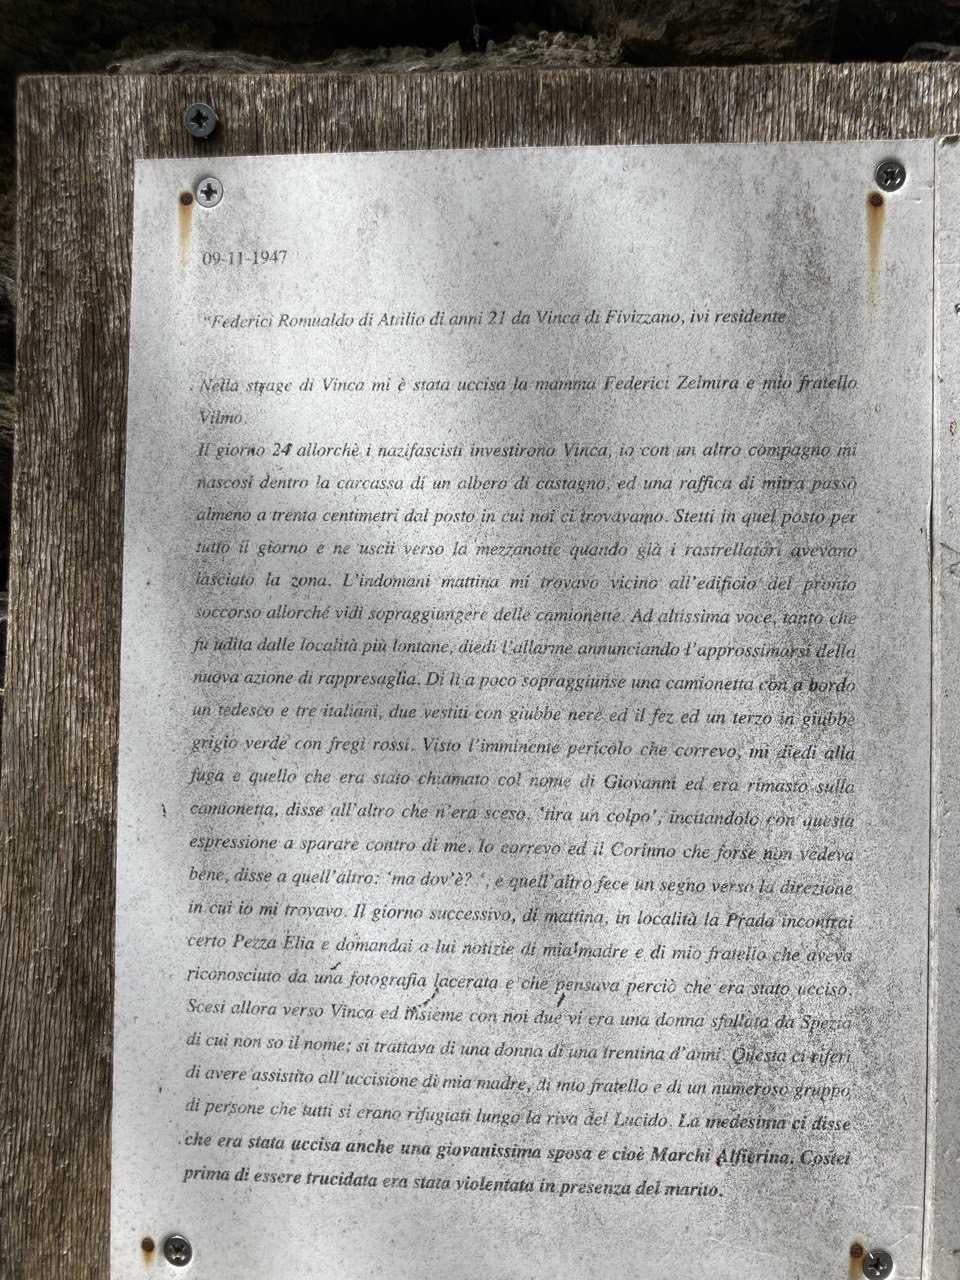 09-11-1947
"Federici Romualdo di Attilio di anni 21 da Vinca di Fivizzano, ivi residente
Nella strage di Vinca mi è stata uccisa la mamma Federici Zelmira e mio fratello
Vilmo.
Il giorno 24 allorchè i nazifascisti investirono Vinca, io con un altro compagno mi
nascosi dentro la carcassa di un albero di castagno, ed una raffica di mitra passò
almeno a trenta centimetri dal posto in cui noi ci trovavamo. Stetti in quel posto per
tutto il giorno e ne uscii verso la mezzanotte quando già i rastrellatori avevano
lasciato la zona. L'indomani mattina mi trovavo vicino all'edificio del pronto
soccorso allorché vidi sopraggiungere delle camionette. Ad altissima voce, tanto che
fu udita dalle località più lontane, diedi l'allarme annunciando l'approssimarsi della
nuova azione di rappresaglia. Di lì a poco sopraggiunse una camionetta con a bordo
un tedesco e tre italiani, due vestiti con giubbe nere ed il fez ed un terzo in giubbe
grigio verde con fregi rossi. Visto l'imminente pericolo che correvo, mi diedi alla
fuga e quello che era stato chiamato col nome di Giovanni ed era rimasto sulla
camionetta, disse all'altro che n'era sceso, 'tira un colpo', incitandolo con questa
espressione a sparare contro di me. Io correvo ed il Corinno che forse non vedeva
bene, disse a quell'altro: 'ma dov'è? ', e quell'altro fece un segno verso la direzione
in cui io mi trovavo. Il giorno successivo, di mattina, in località la Prada incontrai
certo Pezza Elia e domandai a lui notizie di mia madre e di mio fratello che aveva
riconosciuto da una fotografia lacerata e che pensava perciò che era stato ucciso.
Scesi allora verso Vinca ed insieme con noi due vi era una donna sfollata da Spezia
di cui non so il nome; si trattava di una donna di una trentina d'anni. Questa ci riferì
di avere assistito all'uccisione di mia madre, di mio fratello e di un numeroso gruppo
di persone che tutti si erano rifugiati lungo la riva del Lucido. La medesima ci disse
che era stata uccisa anche una giovanissima sposa e cioè Marchi Alfierina. Costei
prima di essere trucidata era stata violentata in presenza del marito.